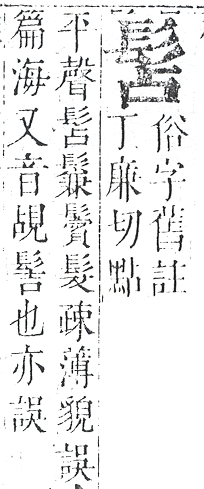 𩬑
俗字舊註
丁廉切點
平聲𩬑鬑鬢髮疎薄貌誤
篇海又音覘髻也亦誤